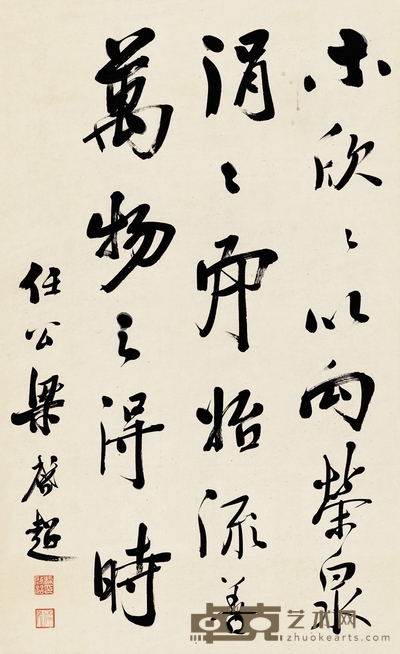 木欣〻以向榮泉
涓〻而始流善
萬物之得時
任公梁啓超
卓克艺术网
zhuokearts.com